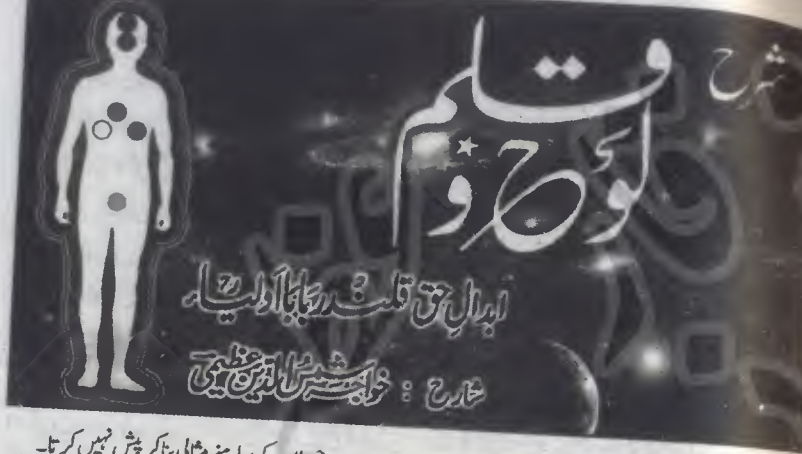 شرح
لوح و قلم
ابدالِ حق قلندر بابا اولیاءؒ
شارح : خواجہ شمس الدین عظیمی
کے سامنے مثالی بنا کر پیش نہیں کرتا۔